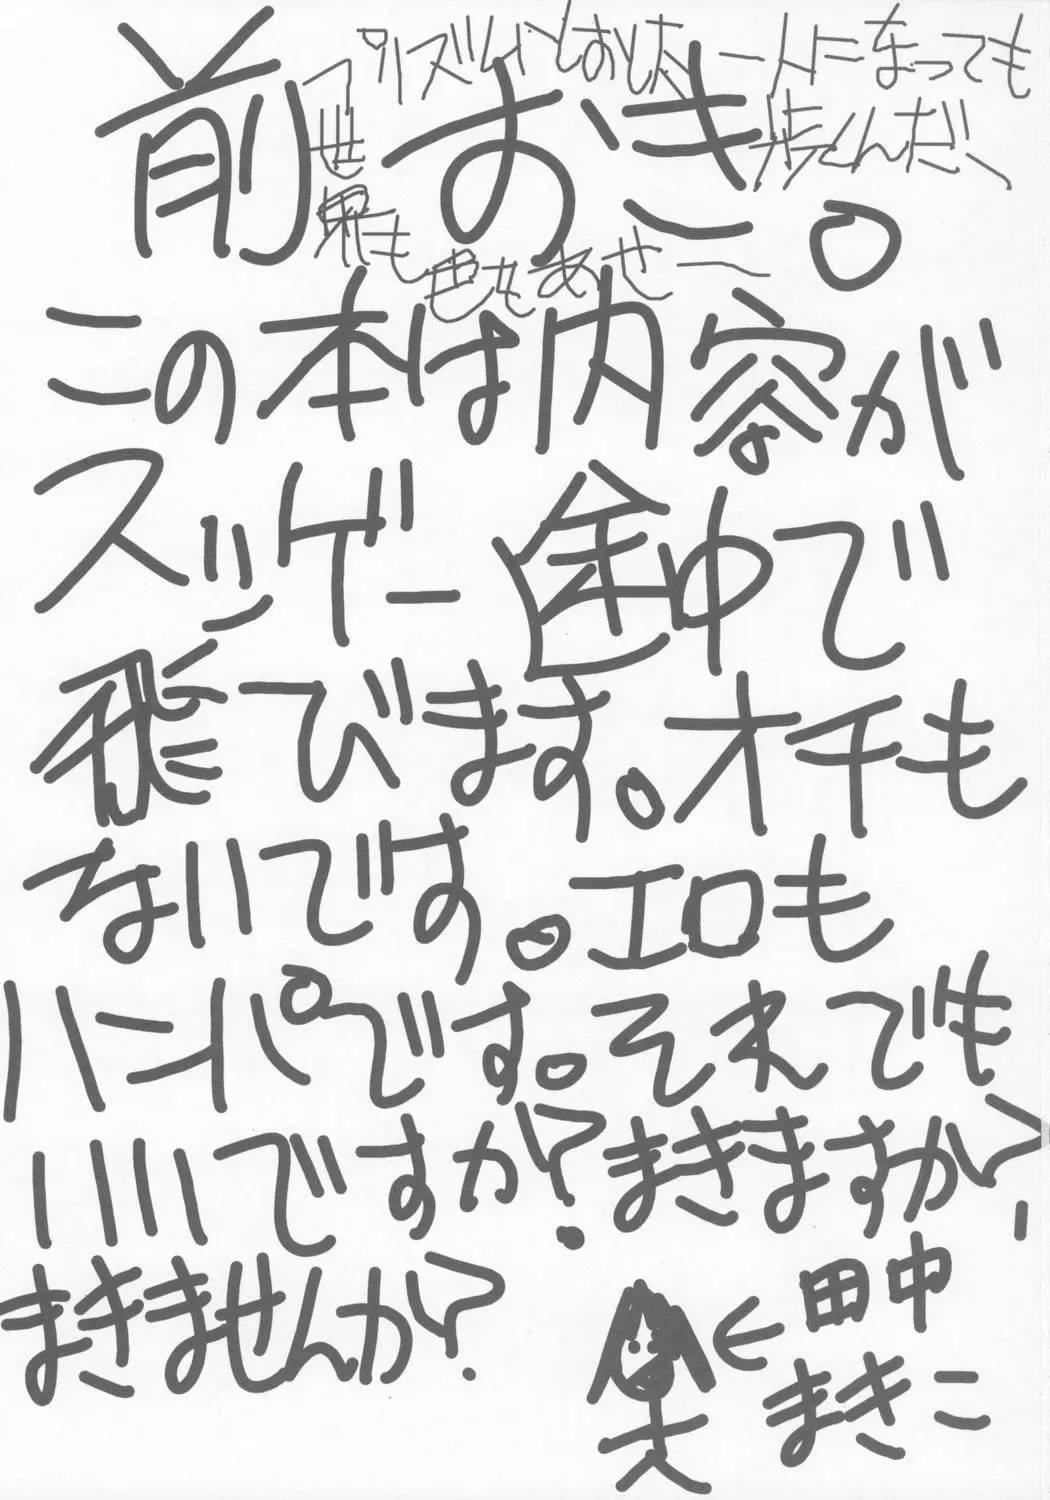 プリズムにとおした一人になっても
歩くんだ
世界も
色もあせ
前おき。
この本は内容が
スッゲー途中で
飛びます。オチも
ないです。エロも
ハンパです。それでも
いいですか?まきますか?
まきませんか?
←田中
まきこ